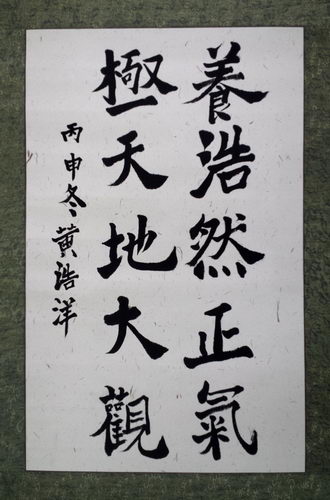 養浩然正氣
極天地大觀
丙申冬黄浩洋